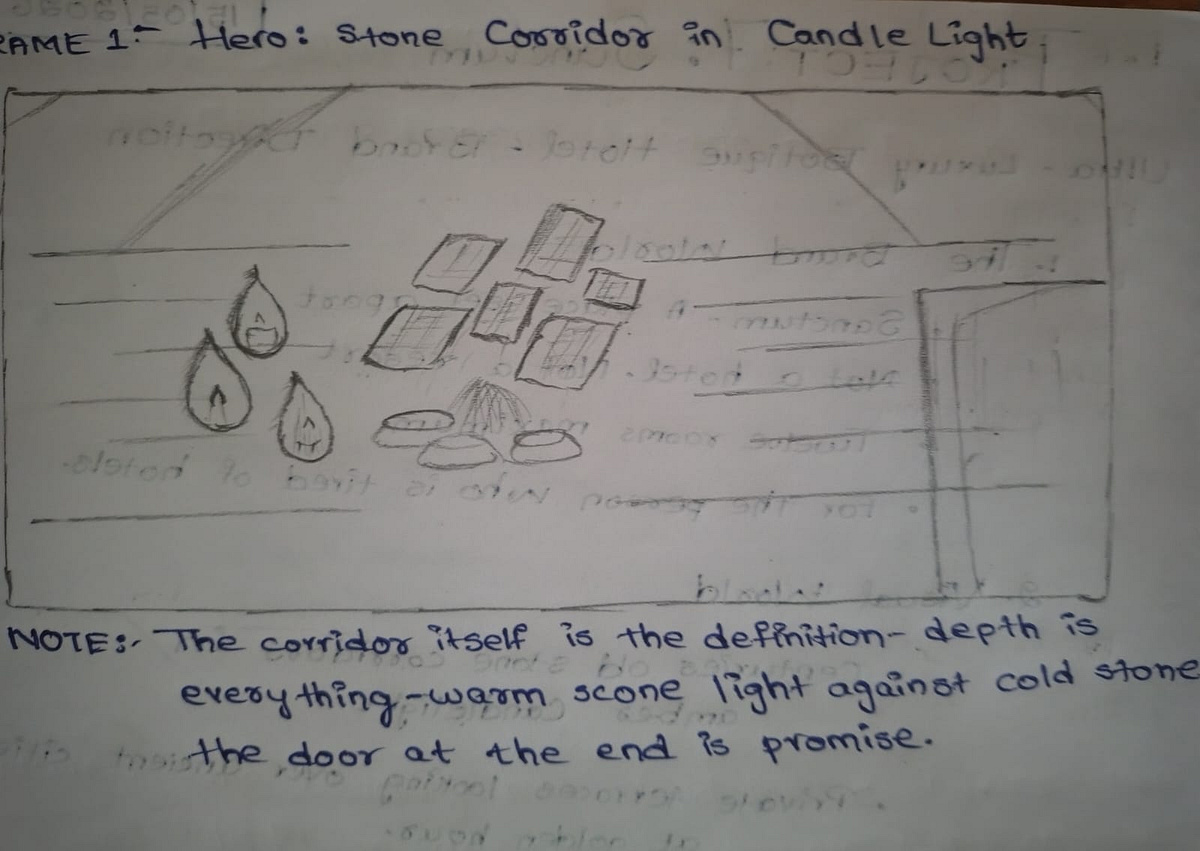 RAME 1:- Hero: Stone Corridor in Candle Light.
NOTE:- The corridor itself is the definition - depth is
everything - warm scone light against cold stone
the door at the end is promise.